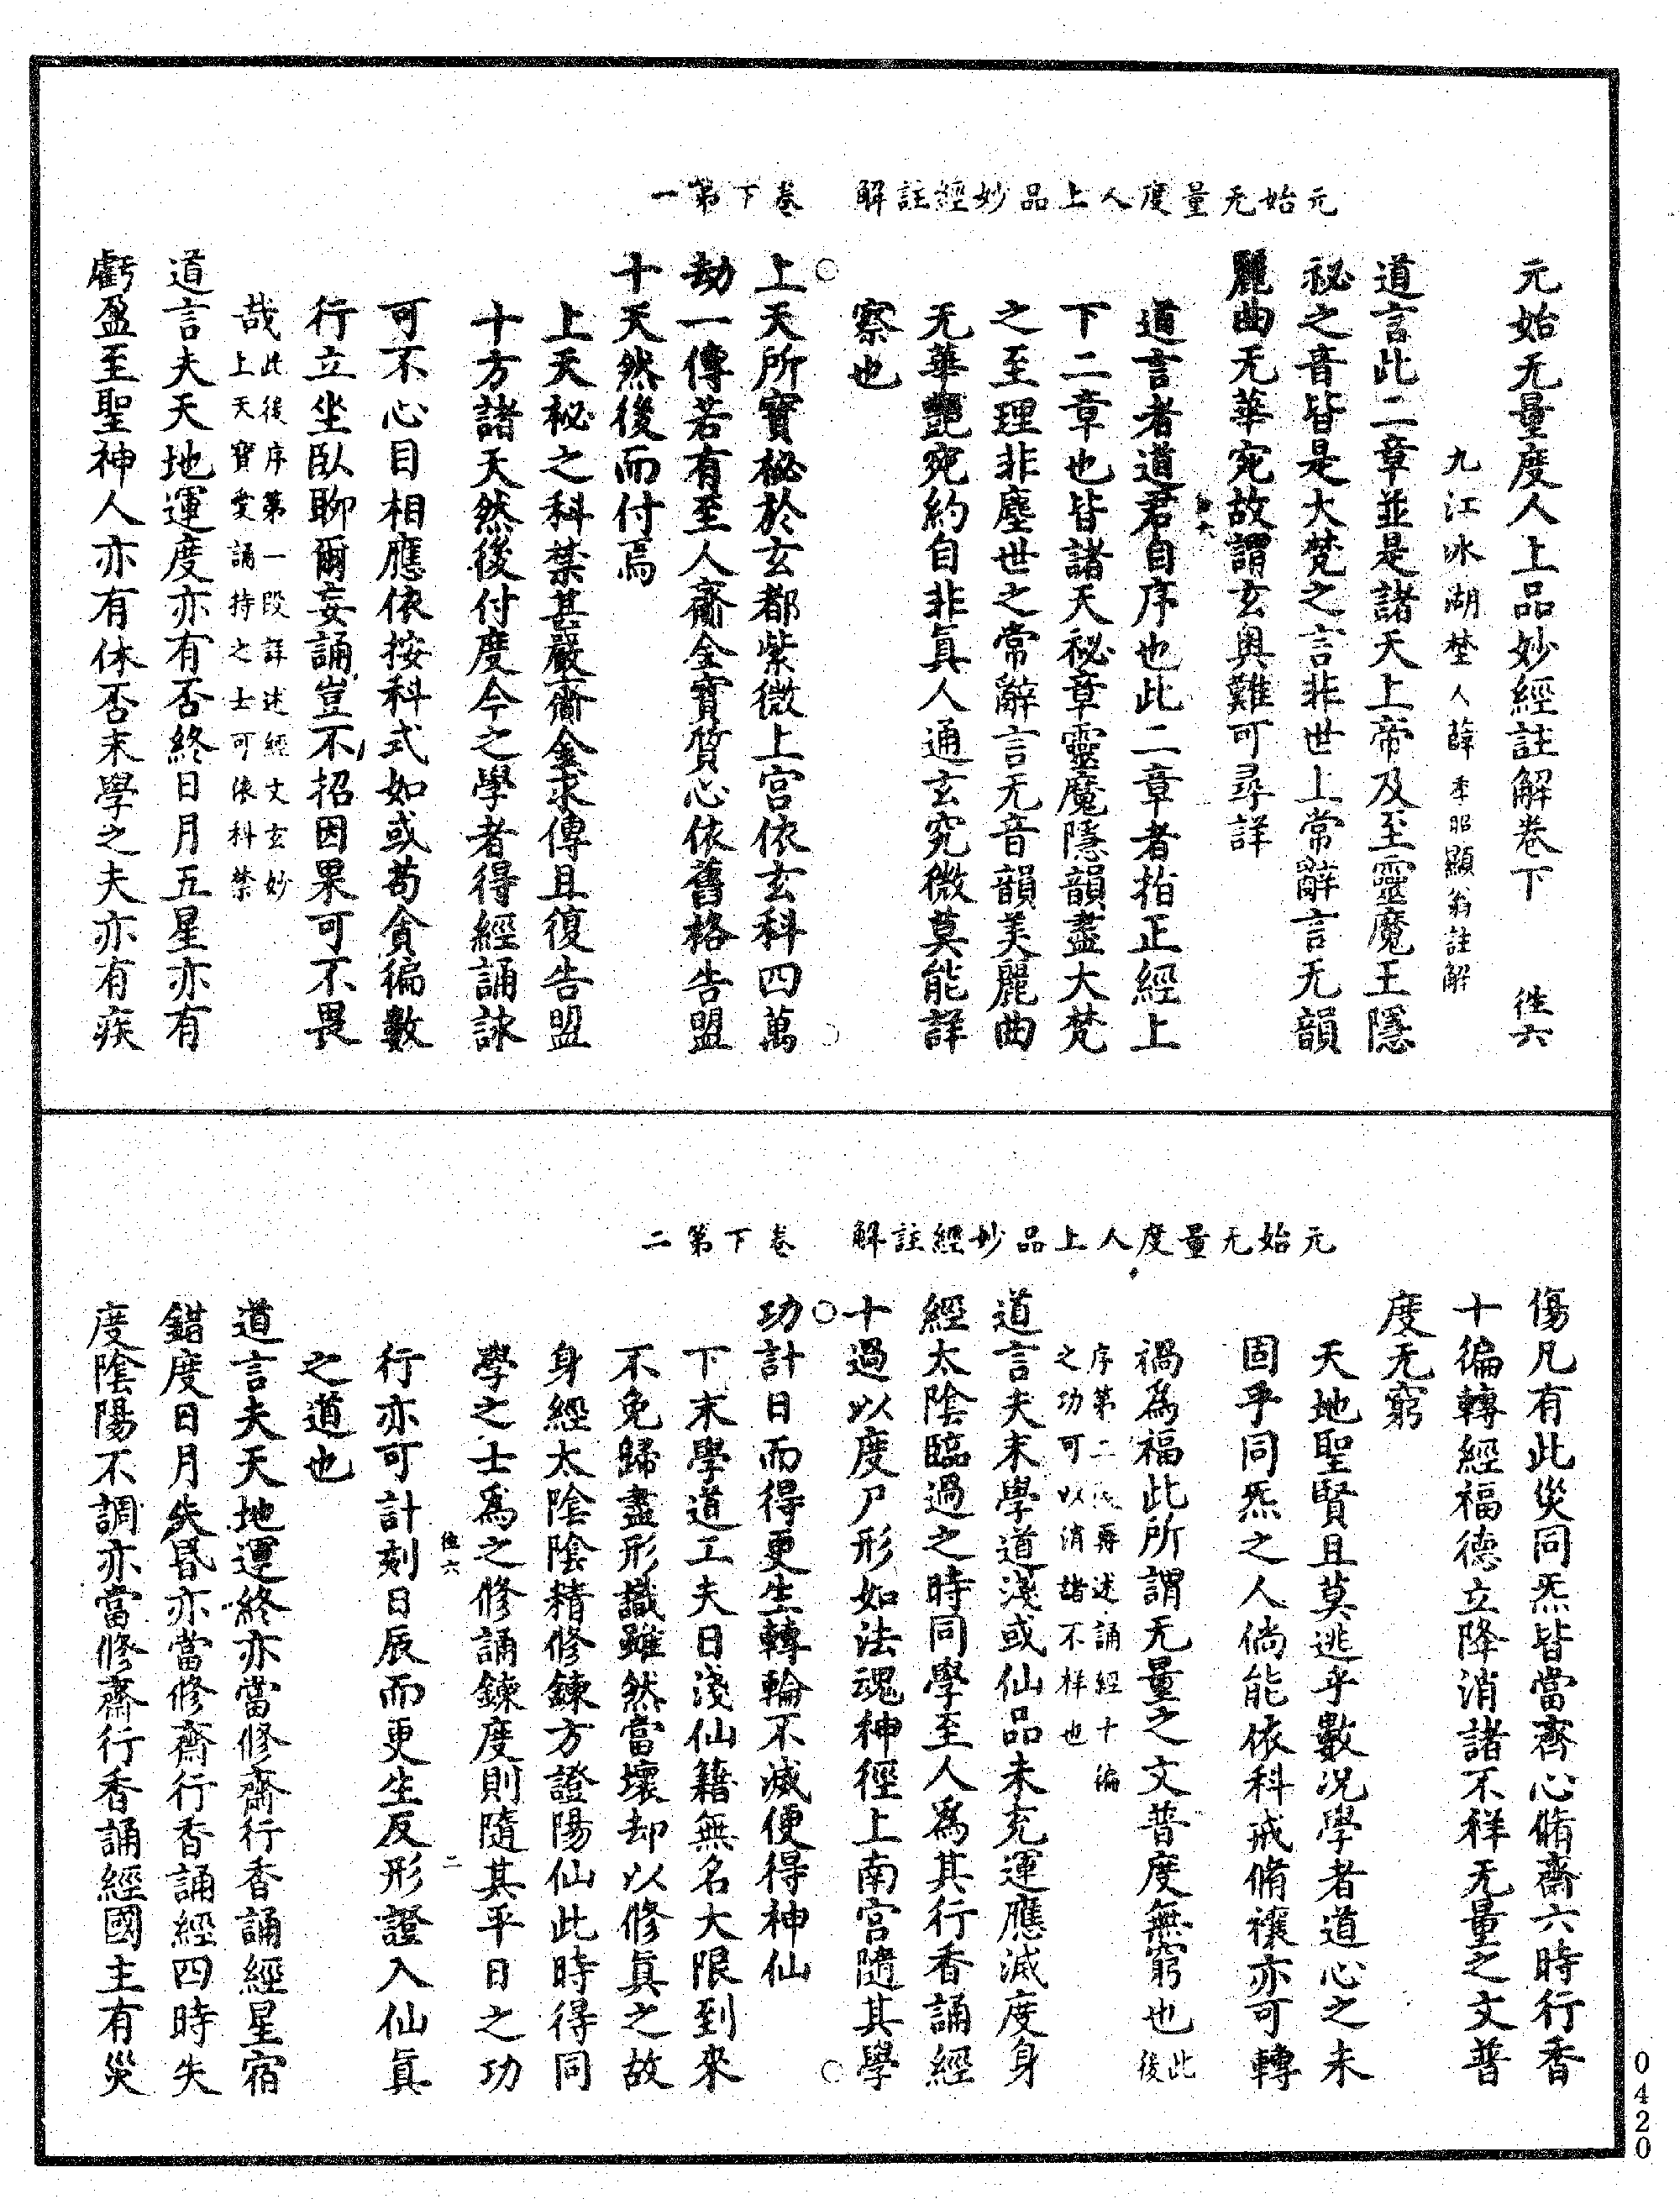 元始无量度人上品妙經註解　卷下第一
元始无量度人上品妙經註解卷下　徃六
九江冰湖埜人薛季昭顯翁註解
道言此二章並是諸天上帝及至靈魔王隱
祕之音皆是大梵之言非世上常辭言无韻
麗曲无華宛故謂玄奥難可尋詳
道言者道君自序也此二章者指正經上
下二章也皆諸天祕章靈魔隱韻盡大梵
之至理非塵世之常辭言无音韻美麗曲
无華艷宛約自非眞人通玄究微莫能詳
察也
上天所寳祕於玄都紫微上宫依玄科四萬
劫一傳若有至人齎金寳質心依舊格告盟
十天然後而付焉
上天祕之科禁甚嚴齎金求傳且復告盟
十方諸天然後付度今之學者得經誦詠
可不心目相應依按科式如或苟貪徧數
行立坐臥聊爾妄誦豈不招因果可不畏
哉此後序第一段詳述經文玄妙
上天寶愛誦持之士可依科禁
道言夫天地運度亦有否終日月五星亦有
虧盈至聖神人亦有休否末學之夫亦有疾
元始无量度人上品妙經註解　卷下第二
傷凡有此災同炁皆當齊心脩齋六時行香
十徧轉經福德立降消諸不祥无量之文普
度无窮
天地聖賢且莫逃乎數况學者道心之未
固乎同炁之人倘能依科戒脩禳亦可轉
禍為福此所謂无量之文普度無窮也此後
序第二段再述誦經十徧
之功可以消諸不祥也
道言夫末學道淺或仙品未充運應滅度身
經太陰臨過之時同學至人爲其行香誦經
十過以度尸形如法魂神徑上南宫隨其學
功計日而得更生轉輪不滅便得神仙
下末學道工夫日淺仙籍無名大限到來
不免歸盡形識雖然當壞却以修眞之故
身經太陰陰精修鍊方證陽仙此時得同
學之士爲之修誦鍊度則隨其平日之功
徃六　二
行亦可計刻日辰而更生反形證入仙眞
之道也
道言夫天地運終亦當修齋行香誦經星宿
錯度日月失昬亦當修齋行香誦經四時失
度陰陽不調亦當修齋行香誦經國主有災
0420